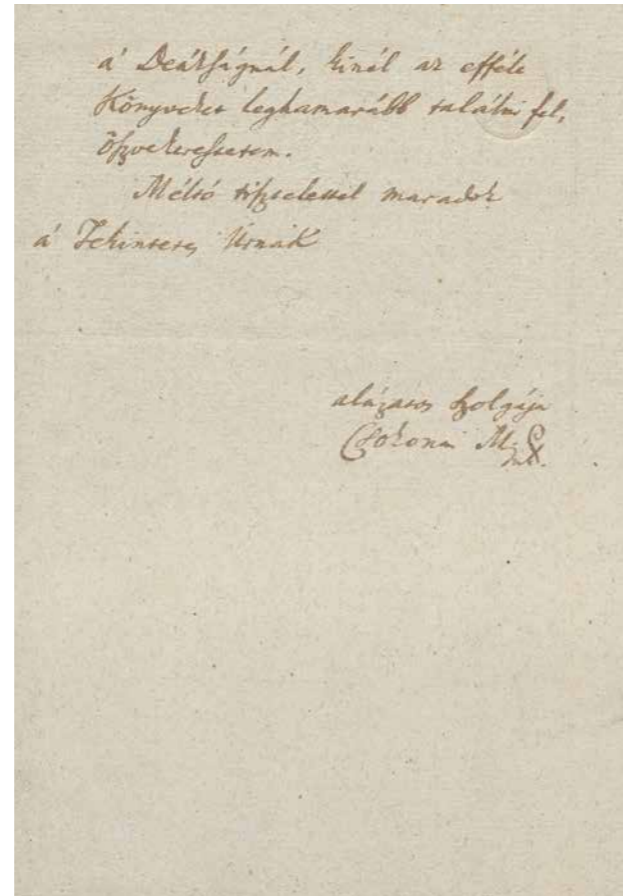 á Deákságnál, kinél az efféle
Könyveket leghamarább találni fel,
öszvekerestetem.
Méltó tisztelettel maradok
á Tekintetes Úrnak
alázatos szolgája
Csokonai M.